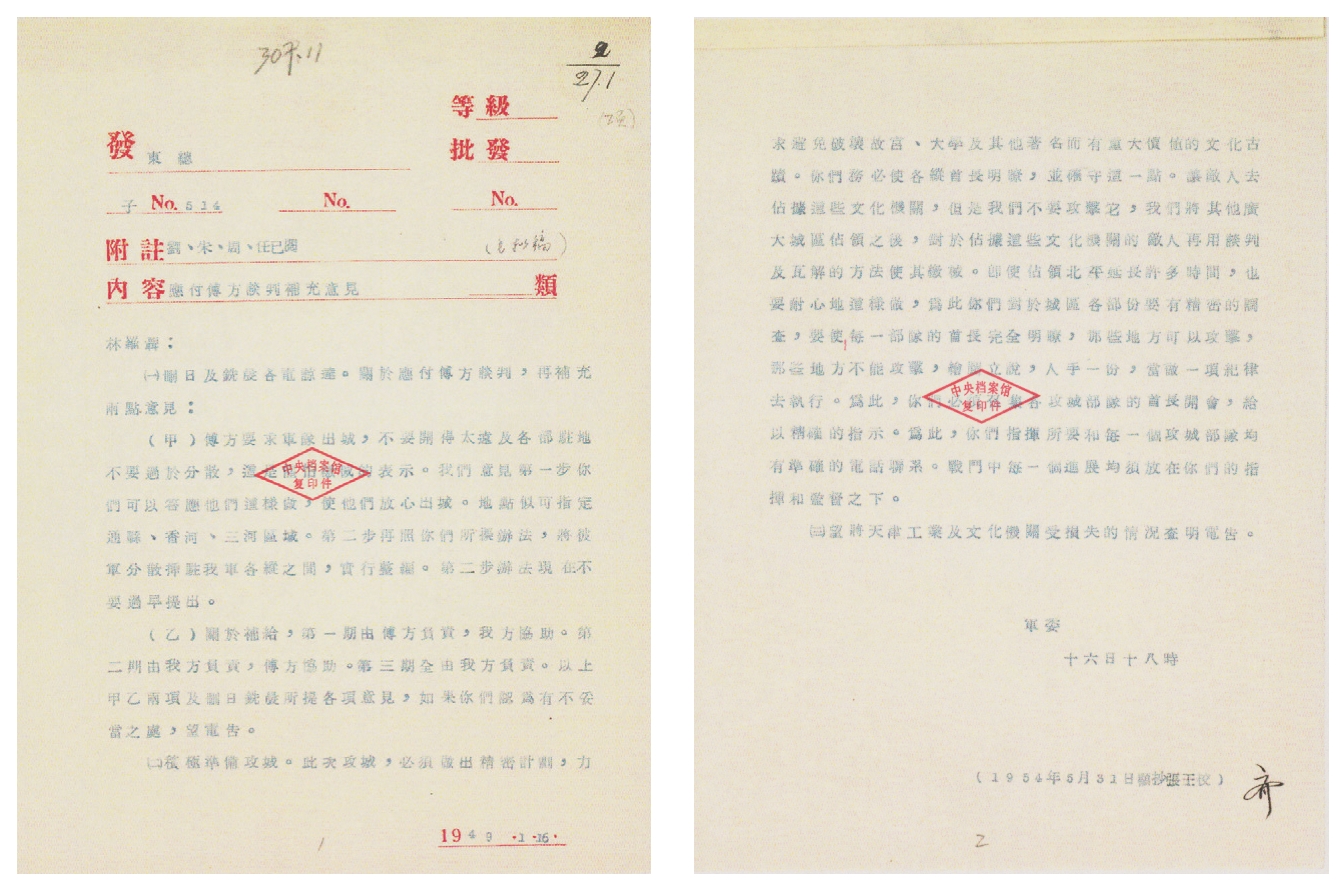 2
27.1
等級
發 東總
批發
子 No. 514 No. No.
附註 劉、朱、周、任已閱
內容 應付傅方談判補充意見 類
林羅聶：
㈠刪日及銑晨各電諒達。關於應付傅方談判，再補充
兩點意見：
（甲）傅方要求軍隊出城，不要開得太遠及各部駐地
不要過於分散，這是 的表示。我們意見第一步你
們可以答應他們這樣做，使他們放心出城。地點似可指定
通縣、香河、三河區域。第二步再照你們所擬辦法，將彼
軍分散揷駐我軍各縱之間，實行整編。第二步辦法現在不
要過早提出。
（乙）關於補給，第一期由傅方負責，我方協助。第
二期由我方負責，傅方協助。第三期全由我方負責。以上
甲乙兩項及刪日銑晨所提各項意見，如果你們認爲有不妥
當之處，望電告。
㈡積極準備攻城。此次攻城，必須做出精密計劃，力
1949·1·16·
1
中央档案馆
复印件
求避免破壞故宮、大學及其他著名而有重大價值的文化古
蹟。你們務必使各縱首長明瞭，並確守這一點。讓敵人去
佔據這些文化機關，但是我們不要攻擊它，我們將其他廣
大城區佔領之後，對於佔據這些文化機關的敵人再用談判
及瓦解的方法使其繳械。卽使佔領北平延長許多時間，也
要耐心地這樣做，爲此你們對於城區各部份要有精密的調
查，要使每一部隊的首長完全明瞭，那些地方可以攻擊，
那些地方不能攻擊，繪圖立說，人手一份，當做一項紀律
去執行。爲此，你們必 各攻城部隊的首長開會，給
以精確的指示。爲此，你們指揮所要和每一個攻城部隊均
有準確的電話聯系。戰鬥中每一個進展均須放在你們的指
揮和監督之下。
㈢望將天津工業及文化機關受損失的情況查明電告。
軍委
十六日十八時
（1954年5月31日 抄張王校）
2
中央档案馆
复印件